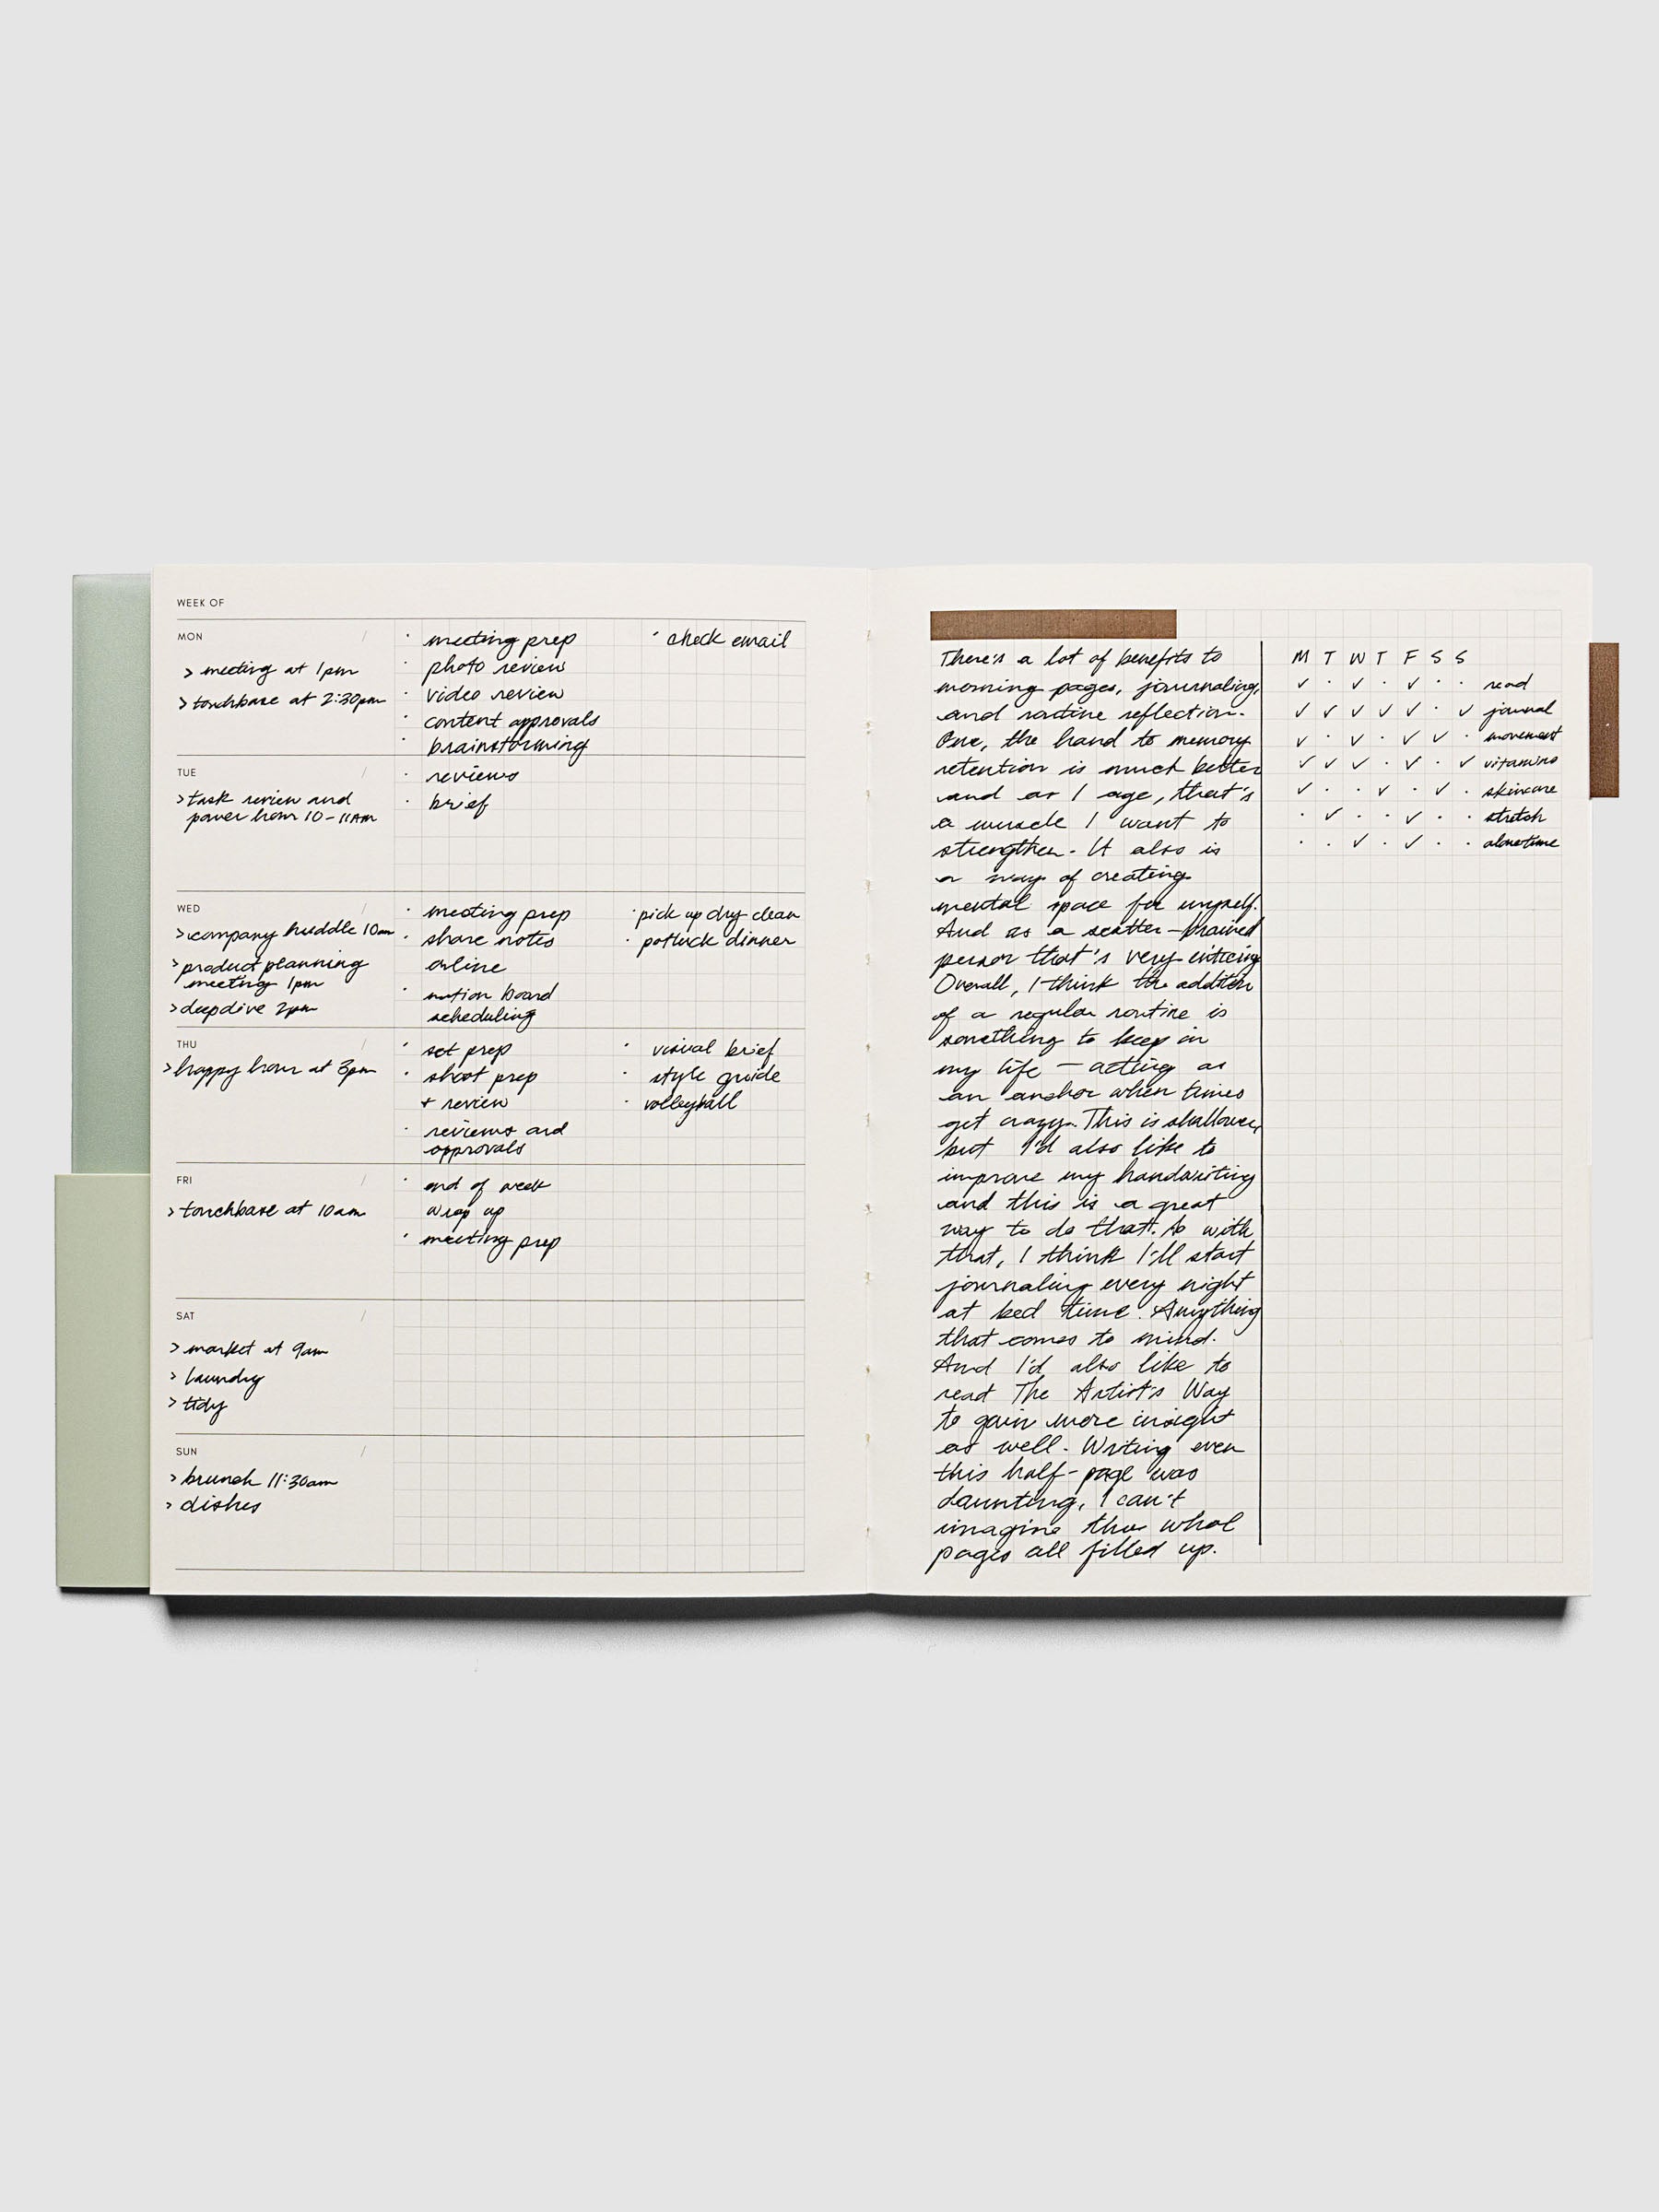 WEEK OF
MON /
> meeting at 1pm
> touchbase at 2:30pm
· meeting prep
· photo review
· video review
· content approvals
· brainstorming
· check email
TUE /
> task review and
power hour 10-11AM
· reviews
· brief
WED /
> company huddle 10am
> product planning
meeting 1pm
> deepdive 2pm
· meeting prep
· share notes
online
· notion board
scheduling
· pick up dry clean
· potluck dinner
THU /
> happy hour at 3pm
· set prep
· shoot prep
+ review
· reviews and
approvals
· visual brief
· style guide
· volleyball
FRI /
> touchbase at 10am
· end of week
wrap up
· meeting prep
SAT /
> market at 9am
> laundry
> tidy
SUN /
> brunch 11:30am
> dishes
There's a lot of benefits to
morning pages, journaling,
and routine reflection.
One, the hand to memory
retention is much better
and as I age, that's
a muscle I want to
strengthen. It also is
a way of creating
mental space for myself.
And as a scatter-brained
person that's very enticing
Overall, I think the addition
of a regular routine is
something to keep in
my life — acting as
an anchor when times
get crazy. This is shallower,
but I'd also like to
improve my handwriting
and this is a great
way to do that. So with
that, I think I'll start
journaling every night
at bed time. Anything
that comes to mind.
And I'd also like to
read The Artist's Way
to gain more insight
as well. Writing even
this half-page was
daunting, I can't
imagine the whol
pages all filled up.
M T W T F S S
✓ · ✓ · ✓ · · read
✓ ✓ ✓ ✓ ✓ · ✓ journal
✓ · ✓ · ✓ ✓ · movement
✓ ✓ ✓ · ✓ · ✓ vitamins
✓ · · ✓ · ✓ · skincare
· ✓ · · ✓ · · stretch
· · ✓ · ✓ · · alonetime